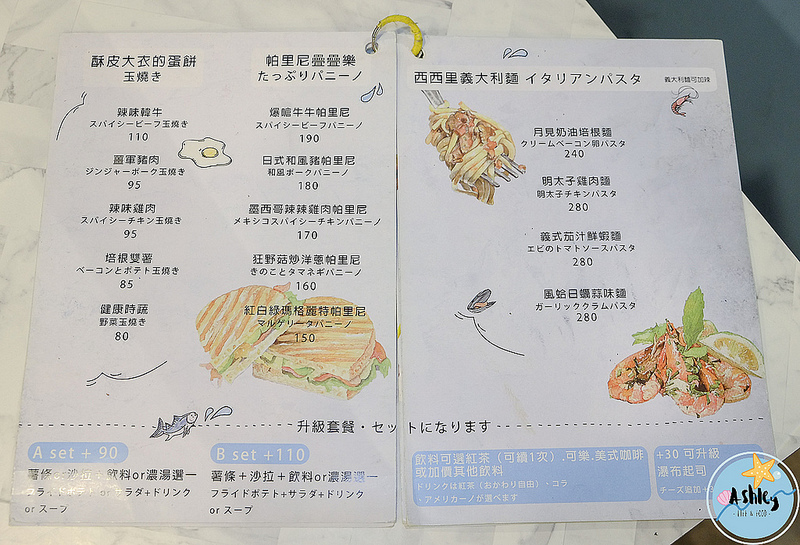 酥皮大衣的蛋餅
玉燒き
辣味韓牛
スパイシービーフ玉燒き
110
薑軍豬肉
ジンジャーポーク玉燒き
95
辣味雞肉
スパイシーチキン玉燒き
95
培根雙薯
ベーコンとポテト玉燒き
85
健康時蔬
野菜玉燒き
80
帕里尼疊疊樂
たっぷりパニーノ
爆嗆牛牛帕里尼
スパイシービーフパニーノ
190
日式和風豬帕里尼
和風ポークパニーノ
180
墨西哥辣辣雞肉帕里尼
メキシコスパイシーチキンパニーノ
170
狂野菇炒洋蔥帕里尼
きのことタマネギパニーノ
160
紅白綠瑪格麗特帕里尼
マルゲリータパニーノ
150
西西里義大利麵 イタリアンパスタ
義大利麵可加辣
月見奶油培根麵
クリームベーコン卵パスタ
240
明太子雞肉麵
明太子チキンパスタ
280
義式茄汁鮮蝦麵
エビのトマトソースパスタ
280
風蛤日曬蒜味麵
ガーリッククラムパスタ
280
升級套餐・セットになります
A set + 90
薯條or沙拉+飲料or濃湯選一
フライドポテト or サラダ+ドリンク
or スープ
B set +110
薯條+沙拉+飲料or濃湯選一
フライドポテト+サラダ+ドリンク
or スープ
飲料可選紅茶（可續1次）.可樂.美式咖啡
或加價其他飲料
ドリンクは紅茶（おかわり自由）、コラ
、アメリカーノが選べます
+30 可升級
瀑布起司
チーズ追加
Ashley